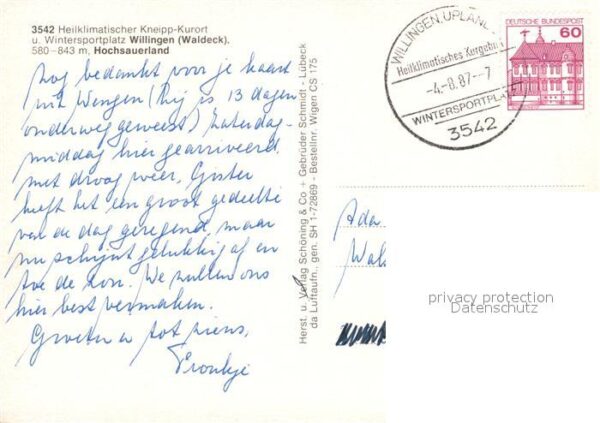 3542 Heilklimatischer Kneipp-Kurort
u. Wintersportplatz Willingen (Waldeck),
580–843 m, Hochsauerland
Nog bedankt voor je kaart
uit Wengen (hij is 13 dagen
onderweg geweest) Zaterdag-
middag hier gearriveerd
met droog weer, Gister
heeft het een groot gedeelte
van de dag geregend, maar
nu schijnt gelukkig af en
toe de zon. We zullen ons
hier best vermaken.
Groeten en tot ziens,
Herst. u. Verlag Schöning & Co + Gebrüder Schmidt - Lübeck
da Luftaufn., gen. SH 1-72869 - Bestellnr. Wigen CS 175
WILLINGEN, UPLAND
Heilklimatisches Kurgebiet
-4.-8.87.--7
WINTERSPORTPLATZ
3542
DEUTSCHE BUNDESPOST
60
Ada
Wal
privacy protection
Datenschutz